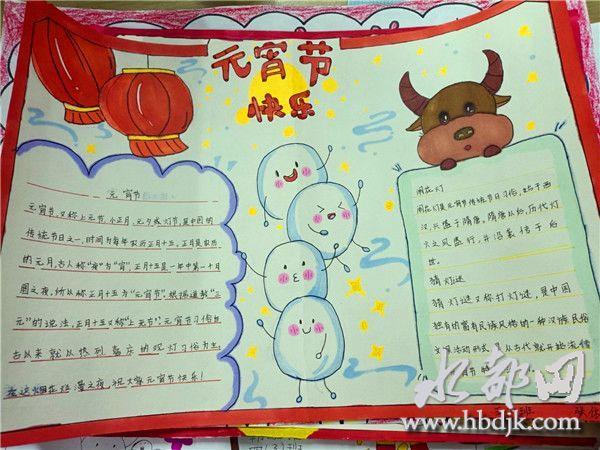 元宵节
快乐
元宵节
元宵节,又称上元节、小正月、元夕或灯节,是中国的
传统节日之一,时间为每年农历正月十五。正月是农历
的元月,古人称"夜"为"宵",正月十五是一年中第一个月
圆之夜,所以称正月十五为"元宵节"。根据道教"三
元"的说法,正月十五又称"上元节"。元宵节习俗自
古以来就以热烈喜庆的观灯习俗为主。
在这烟花烂漫之夜,祝大家元宵节快乐!
闹花灯
闹花灯是元宵节传统节日习俗,始于西
汉,兴盛于隋唐。隋唐以后,历代灯
火之风盛行,并沿袭传于后
世。
猜灯谜
猜灯谜又称打灯谜,是中国
独有的富有民族风格的一种汉族民俗
文娱活动形式,是从古代就开始流传
元宵节
班
水都网
www.hbdjk.com